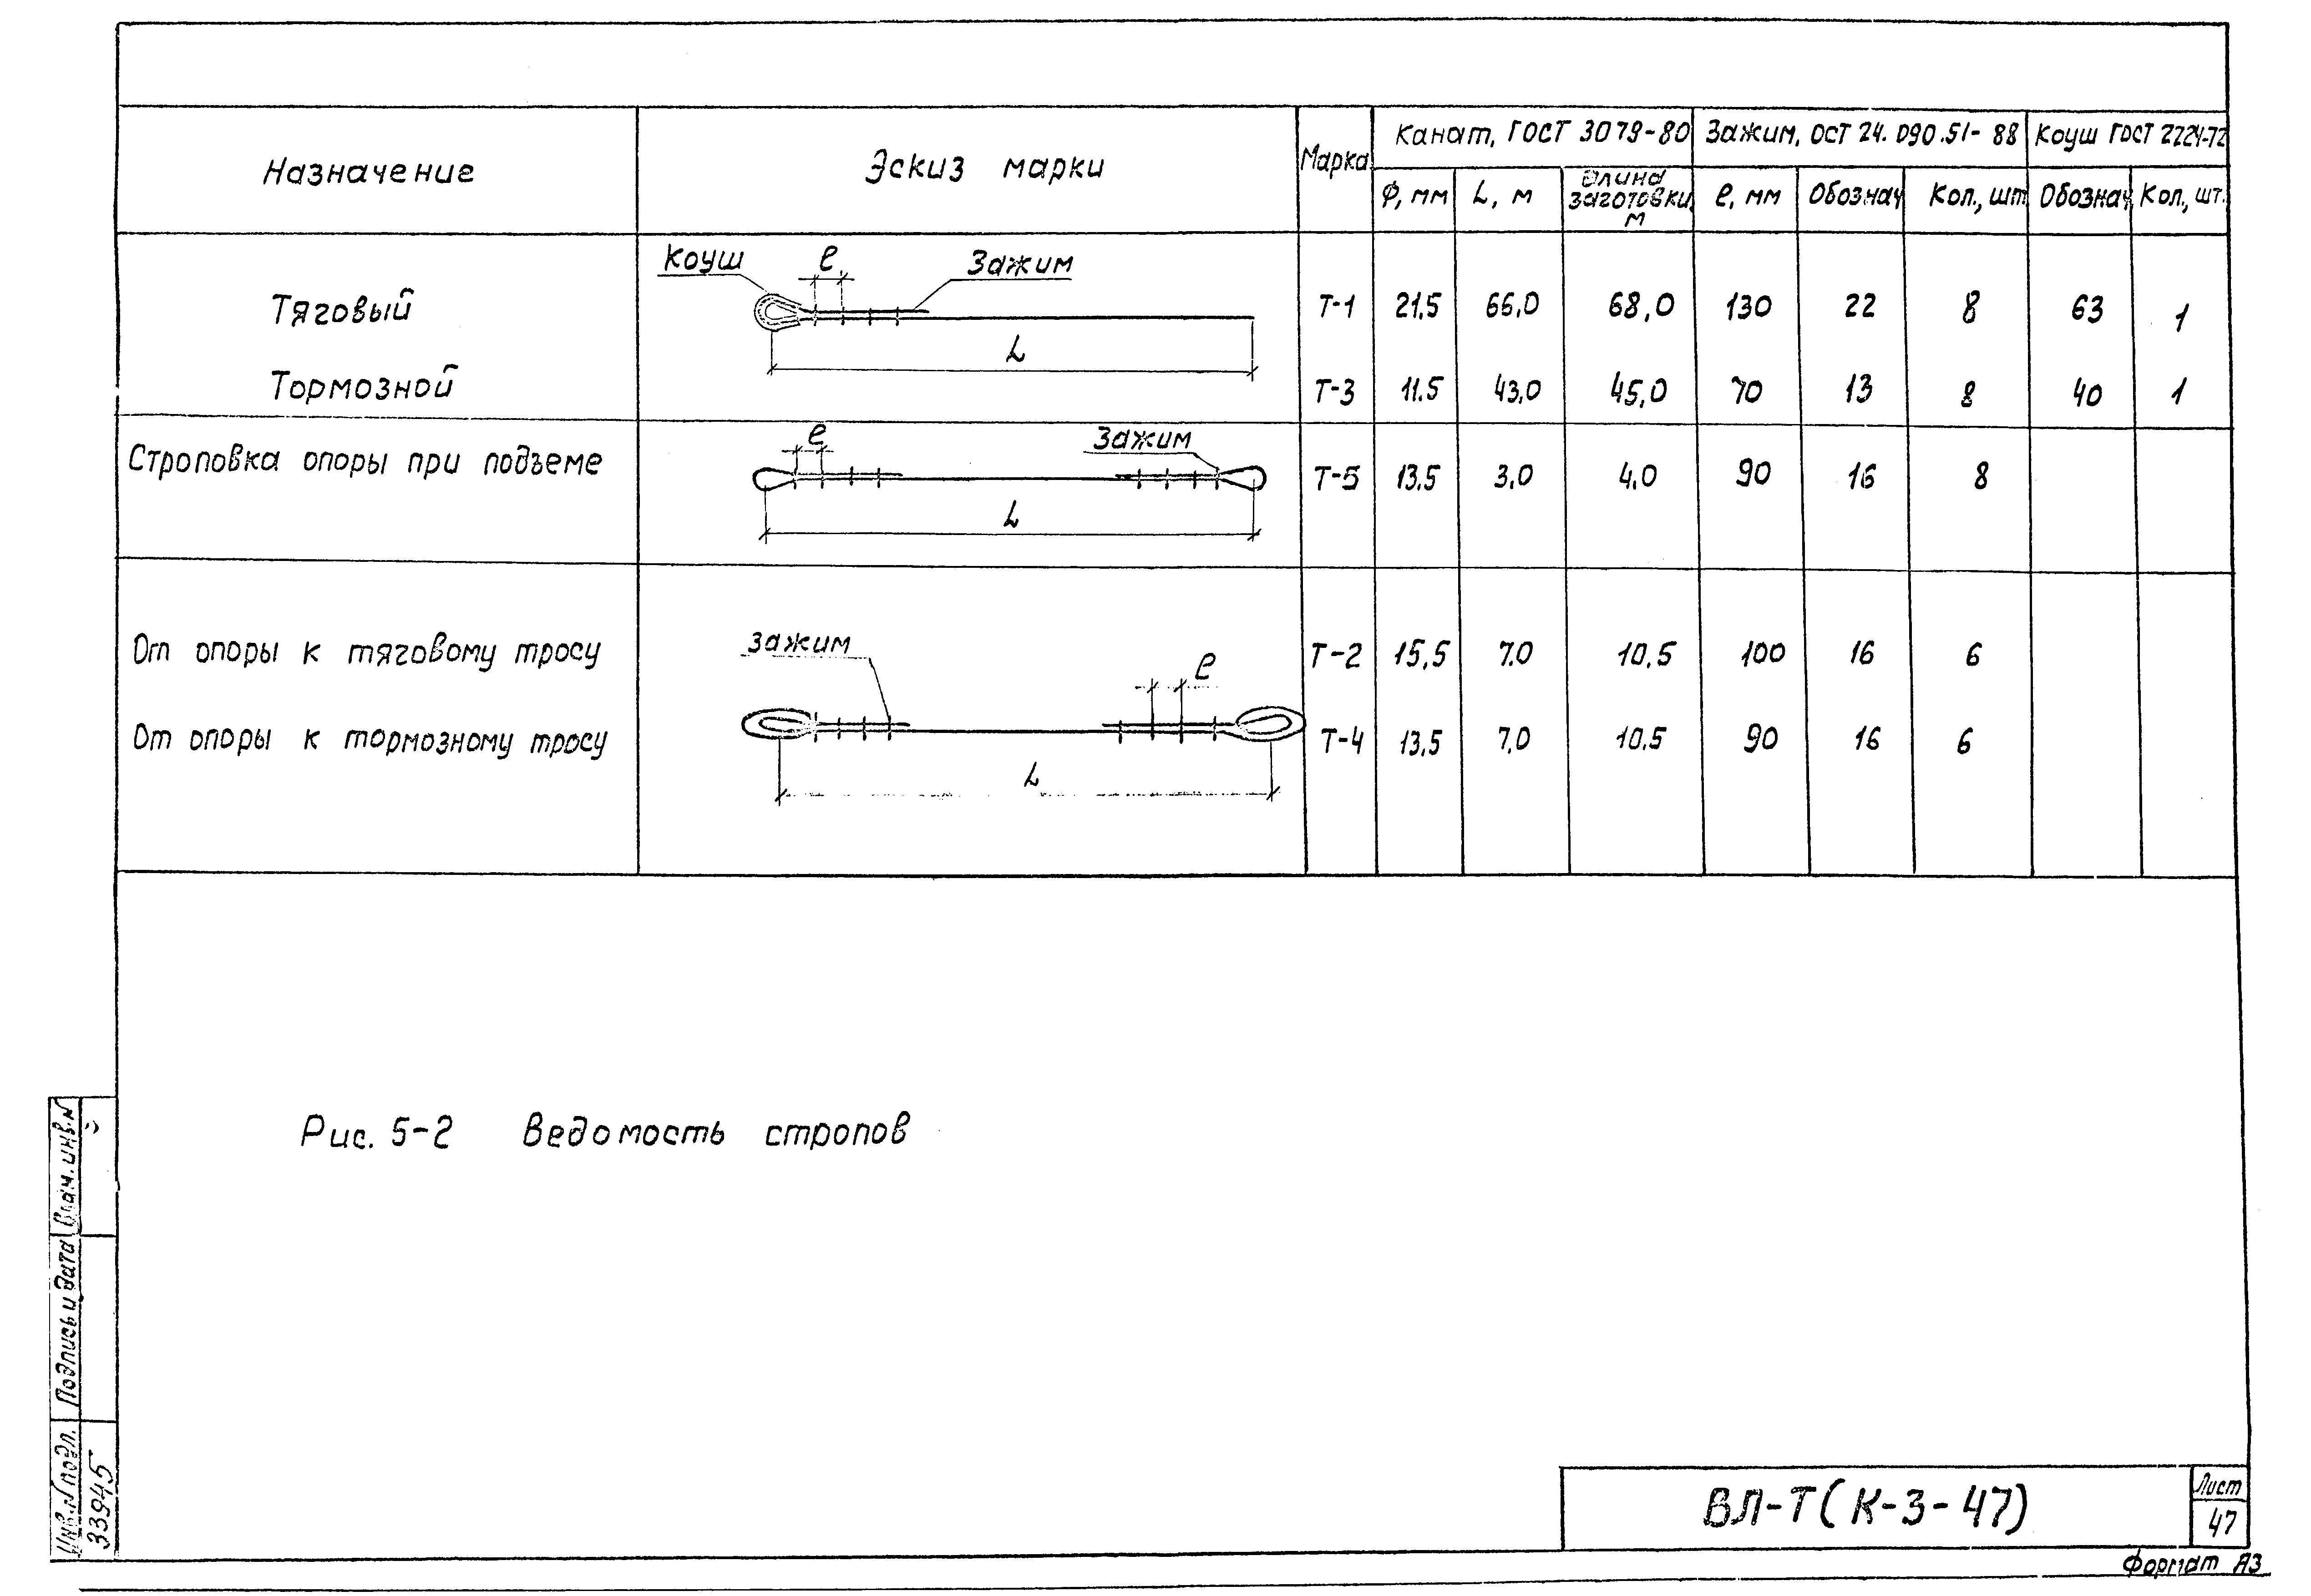 Назначение Эскиз марки Марка Канат, ГОСТ 3079-80 Зажим, ОСТ 24.090.51-88 Коуш ГОСТ 2224-72
Ф, мм L, м Длина заготовки, м ℓ, мм Обознач Кол., шт Обознач Кол., шт.
Коуш ℓ Зажим
Тяговый Т-1 21,5 66,0 68,0 130 22 8 63 1
L
Тормозной Т-3 11.5 43,0 45,0 70 13 8 40 1
ℓ Зажим
Строповка опоры при подъеме Т-5 13,5 3,0 4,0 90 16 8
L
Зажим ℓ
От опоры к тяговому тросу Т-2 15,5 7,0 10,5 100 16 6
От опоры к тормозному тросу Т-4 13,5 7,0 10,5 90 16 6
L
Рис. 5-2 Ведомость стропов
Взам. инв. №
Подпись и дата
Инв. № подл.
33945
ВЛ-Т (К-3-47)
Лист
47
Формат А3